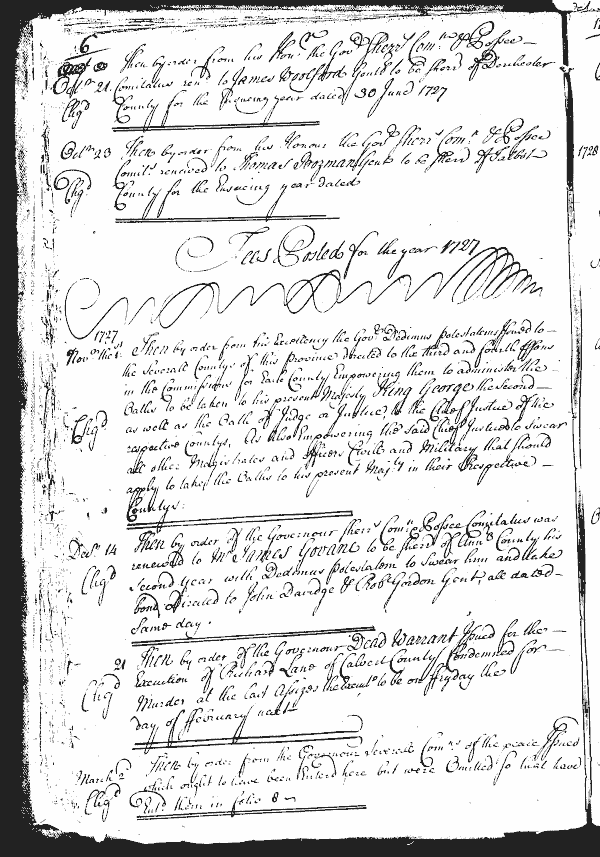 6
Octbr 21. Then by order from his Honr. the Govr. Sherrs Comn. & Posse
Comitatus rend. to James Woolford Gentl to be Sherd of Dorchester
Chgd County for the Ensueing year dated 30 June 1727
Octbr 23 Then by order from his Honour the Govr Sherrs Comn. & Posse
Comits. renewed to Thomas Bozman Gent to be Sherd of Talbot
Chgd. County for the Ensueing year dated
1728
Fees Posted for the year 1727
1727
Novbr the 1st. Then by order from his Excellency the Govr. Dedimus potestatems Issued to
the Severall Countys of this Province directed to the third and fourth
in the Commissions for Each County Empowering them to administer the
Oaths to be taken to his present Majesty King George the Second
as well as the Oath of Judge or Justice, to the Chief Justice of the
Chgd respective Countys, As also Empowering the said Chief Justice to Swear
all other Magistrates and officers Civill and Military that should
apply to take the Oaths to his present Majty in their Respective
Countys:
Decbr. 14 Then by order of the Governour Sherrs Comn. & Posse Comitatus was
renewed to Mr. James Govane to be Sherd of Annd County his
Chgd Second year with Dedimus potestatem to Swear him and take
bond directed to John Davidge & Robt. Gordon Gent, all dated
Same day.
21 Then by order of the Governour Dead Warrant Issued for the
Execution of Richard Lane of Calvert County Condemned for
Chgd Murder at the last Assizes the Execut. to be on ffryday the
day of ffebruary next
March 2d Then by order from the Governour Severall Comns. of the peace Issued
which ought to have been Enterd here but were Omitted so that have
Chgd Entd them in folio 8